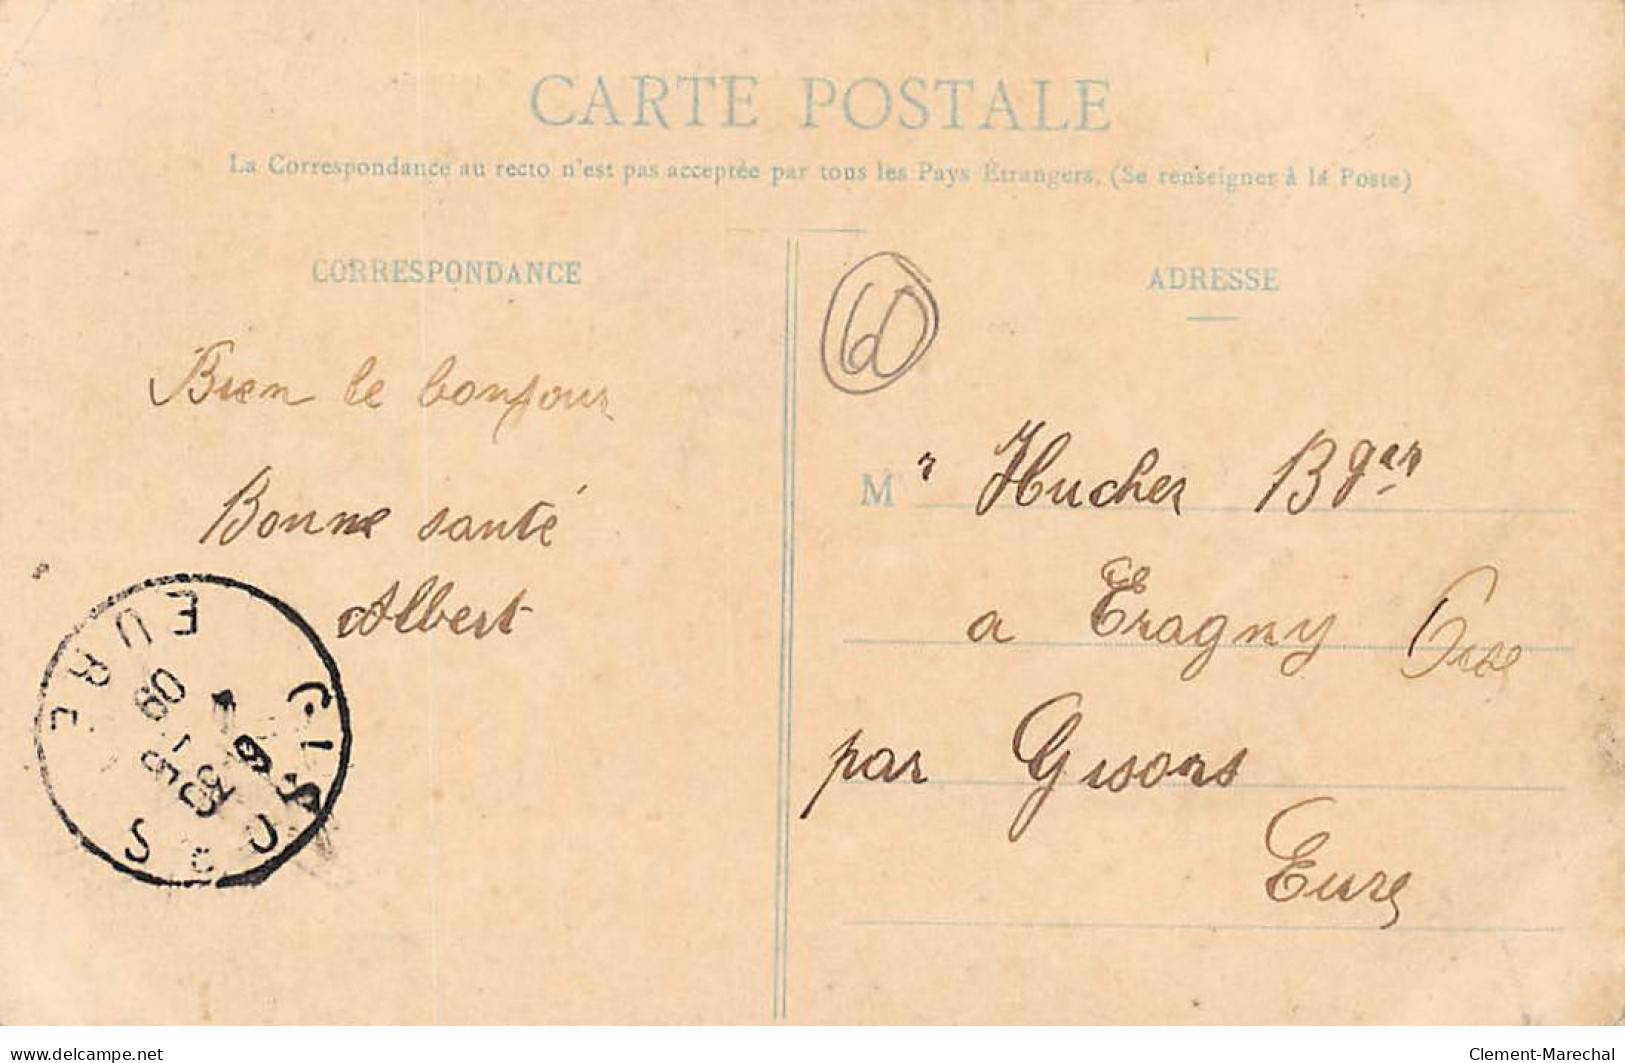 CARTE POSTALE
La Correspondance au recto n'est pas acceptée par tous les Pays Étrangers. (Se renseigner à la Poste)
CORRESPONDANCE
Bien le bonjour
Bonne santé
Albert
GISORS
EURE
09
60
ADRESSE
M r Hucher Bger
a Eragny Oise
par Gisors
Eure
www.delcampe.net
Clement-Marechal